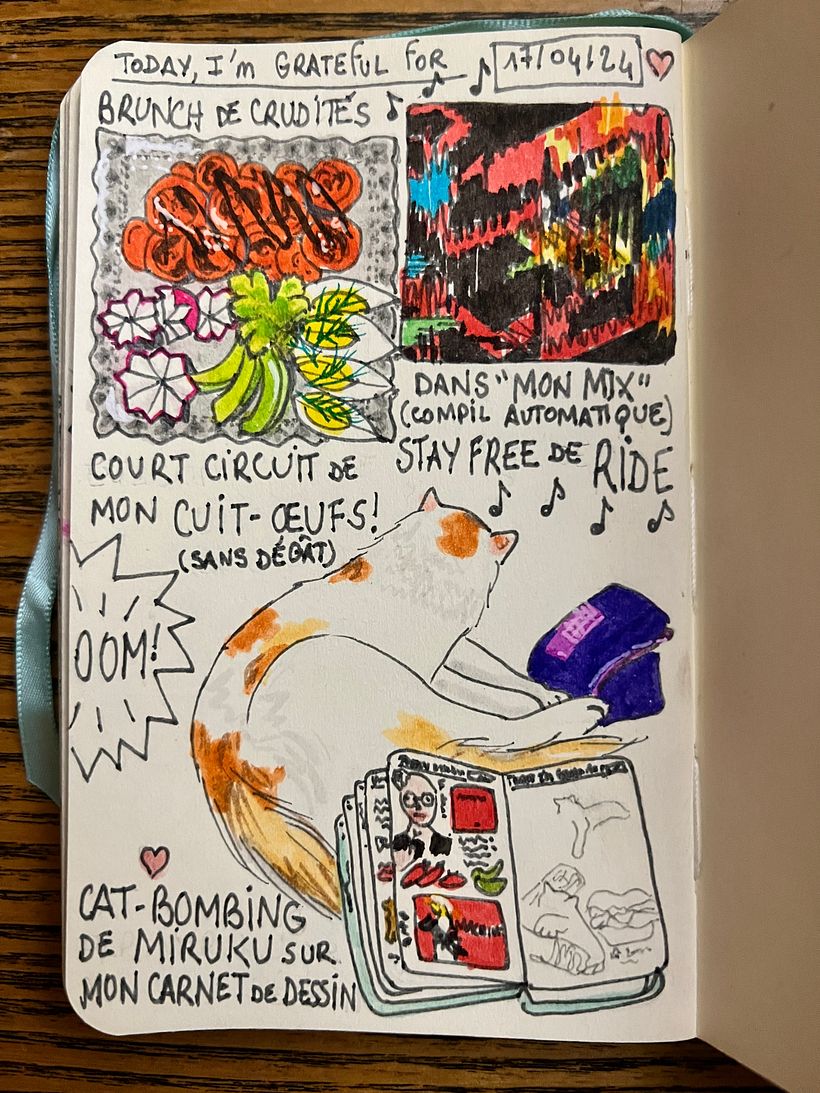 TODAY, I'm GRATEFUL FOR 17/04/24
BRUNCH DE CRUDITÉS
DANS "MON MIX"
(COMPIL AUTOMATIQUE)
STAY FREE DE RIDE
COURT CIRCUIT DE
MON CUIT-ŒUFS!
(SANS DÉGÂT)
OOM!
CAT-BOMBING
DE MIRUKU SUR
MON CARNET DE DESSIN
MACHINE